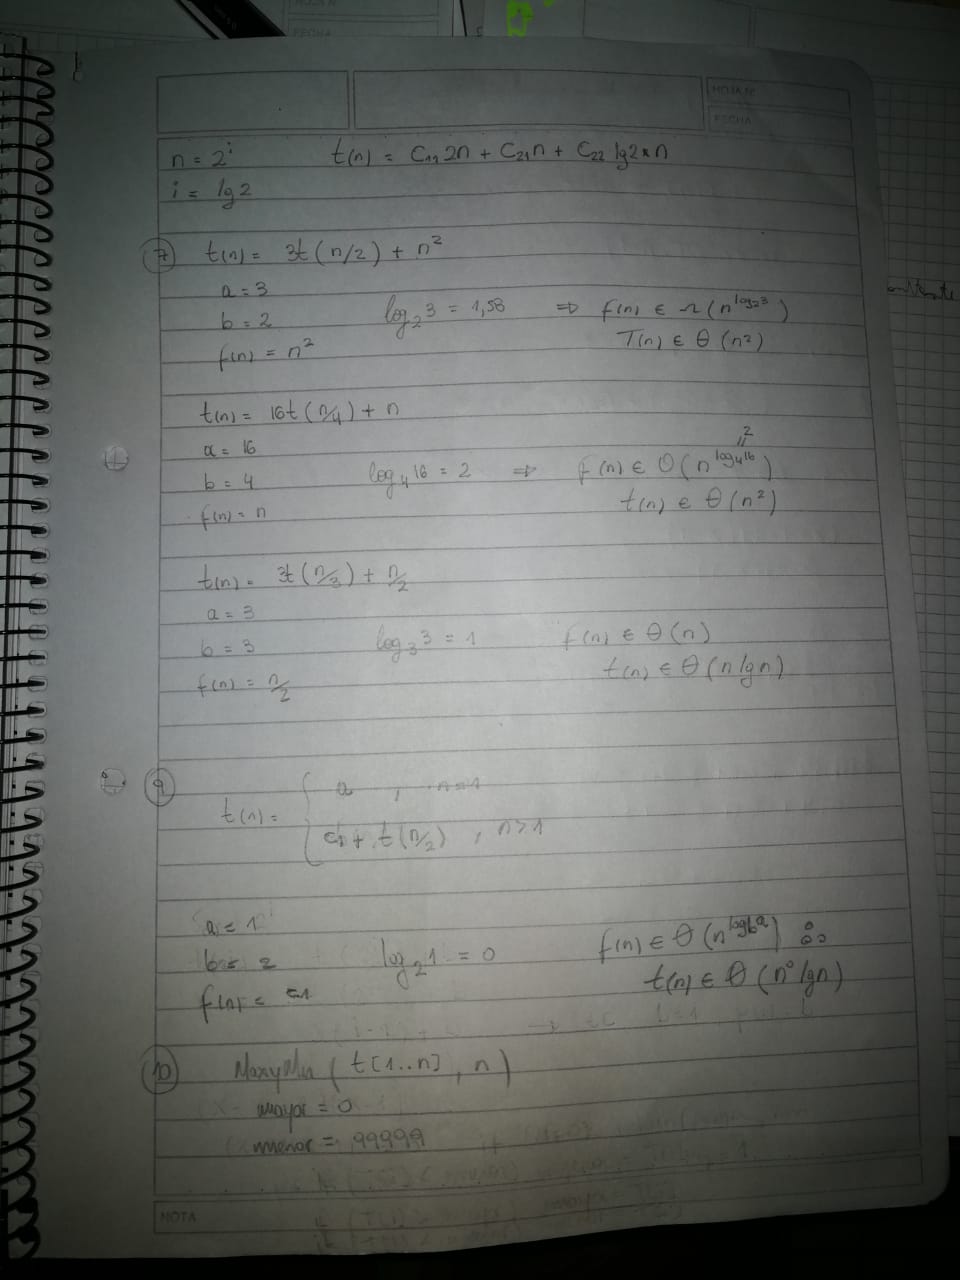 HOJA Nº
FECHA
HOJA Nº
FECHA
n = 2^i t(n) = C₁₁ 2n + C₂₁n + C₂₂ lg2 * n
i = lg2
7 t(n) = 3t(n/2) + n²
a = 3
b = 2 log₂3 = 1,58 ⇒ f(n) ∈ Ω(n^log₂3)
f(n) = n² T(n) ∈ θ(n²)
t(n) = 16t(n/4) + n
a = 16 2
b = 4 log₄16 = 2 ⇒ f(n) ∈ O(n^log₄16)
f(n) = n t(n) ∈ θ(n²)
t(n) = 3t(n/3) + n/2
a = 3
b = 3 log₃3 = 1 f(n) ∈ θ(n)
f(n) = n/2 t(n) ∈ θ(n lgn)
9 a , n=1
t(n) = {
c₁ + t(n/2) , n>1
a = 1
b = 2 log₂1 = 0 f(n) ∈ θ(n^logba) ∴
f(n) = c1 t(n) ∈ θ(n⁰lgn)
10 MaxyMin(t[1..n], n)
mayor = 0
menor = 99999
NOTA